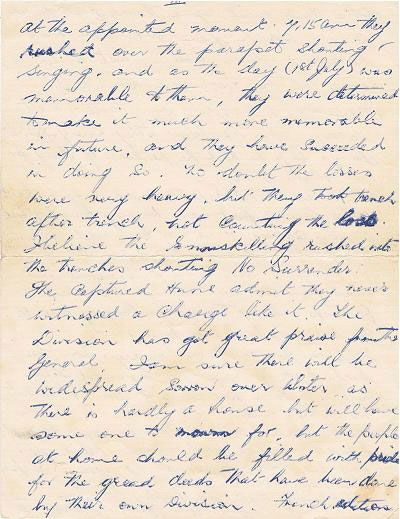 at the appointed moment. 7.15 am they
rushed over the parapet shouting,
singing, and as the day (1st July) was
memorable to them, they were determined
to make it much more memorable
in future, and they have succeeded
in doing so. No doubt the losses
were very heavy, but they took trench
after trench, not counting the
I believe the Inniskilling rushed into
the trenches shouting No Surrender.
The Captured Huns admit they never
witnessed a Charge like it. The
Division has got great praise from the
General I am sure there will be
widespread Sorrow over Ulster as
there is hardly a house but will have
some one to mourn for, but the people
at home should be filled with pride
for the great deeds that have been done
by their own Division. French